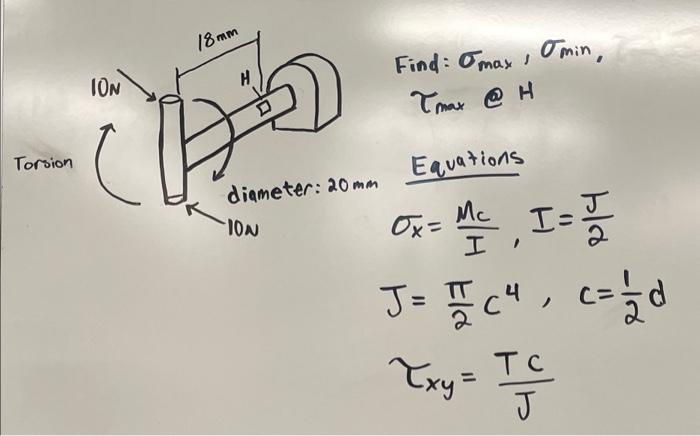 18mm
H
10N
Torsion
diameter: 20mm
10N
Find: σmax, σmin,
τmax @ H
Equations
σx = Mc/I, I = J/2
J = π/2 c⁴, c = 1/2 d
τxy = Tc/J